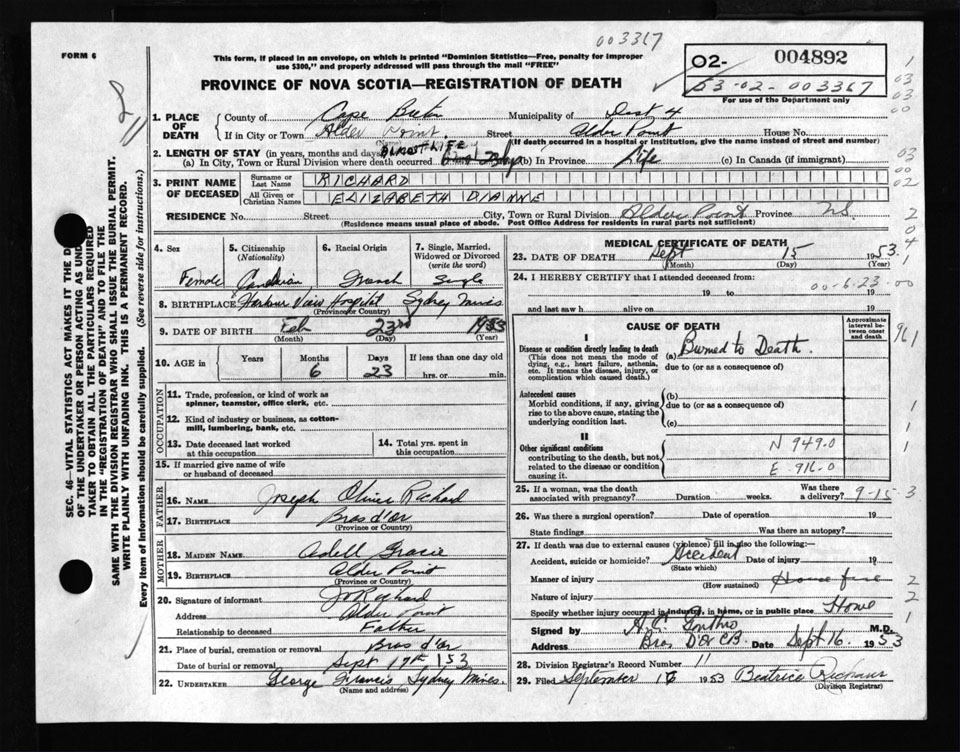 003367
FORM 6
This form, if placed in an envelope, on which is printed "Dominion Statistics—Free, penalty for improper
use $300," and properly addressed will pass through the mail "FREE"
02- 004892
53-02-003367
For use of the Department only
PROVINCE OF NOVA SCOTIA—REGISTRATION OF DEATH
SEC. 46—VITAL STATISTICS ACT MAKES IT THE D
OF THE UNDERTAKER OR PERSON ACTING AS UND
TAKER TO OBTAIN ALL THE PARTICULARS REQUIRED
IN THE "REGISTRATION OF DEATH" AND TO FILE THE
SAME WITH THE DIVISION REGISTRAR WHO SHALL ISSUE THE BURIAL PERMIT.
WRITE PLAINLY WITH UNFADING INK. THIS IS A PERMANENT RECORD.
Every item of Information should be carefully supplied. (See reverse side for instructions.)
1. PLACE OF DEATH
County of Cape Breton Municipality of Dist 4
If in City or Town Alder Point Street Alder Point House No.
(If death occurred in a hospital or institution, give the name instead of street and number)
2. LENGTH OF STAY (in years, months and days)
(a) In City, Town or Rural Division where death occurred LIFE (b) In Province Life (c) In Canada (if immigrant)
3. PRINT NAME OF DECEASED
Surname or Last Name RICHARD
All Given or Christian Names ELIZABETH DIANNE
RESIDENCE No. Street City, Town or Rural Division Alder Point Province N.S.
(Residence means usual place of abode. Post Office Address for residents in rural parts not sufficient)
4. Sex Female
5. Citizenship (Nationality) Canadian
6. Racial Origin French
7. Single, Married, Widowed or Divorced (write the word) Single
8. BIRTHPLACE Harbour View Hospital Sydney Mines
(Province or Country)
9. DATE OF BIRTH Feb 23rd 1953
(Month) (Day) (Year)
10. AGE in Years Months 6 Days 23 If less than one day old
hrs. or min.
OCCUPATION
11. Trade, profession, or kind of work as
spinner, teamster, office clerk, etc.
12. Kind of industry or business, as cotton-
mill, lumbering, bank, etc.
13. Date deceased last worked
at this occupation
14. Total yrs. spent in
this occupation
15. If married give name of wife
or husband of deceased
FATHER
16. NAME Joseph Oliver Richard
17. BIRTHPLACE Bras d'or
(Province or Country)
MOTHER
18. MAIDEN NAME Adell Gracie
19. BIRTHPLACE Alder Point
(Province or Country)
20. Signature of informant J O Richard
Address Alder Point
Relationship to deceased Father
21. Place of burial, cremation or removal Bras d'or
Date of burial or removal Sept 17th 153
22. UNDERTAKER George Francis Sydney Mines.
(Name and address)
MEDICAL CERTIFICATE OF DEATH
23. DATE OF DEATH Sept 15 1953.
(Month) (Day) (Year)
24. I HEREBY CERTIFY that I attended deceased from:
00-6-23-00
19 to 19
and last saw h alive on 19
CAUSE OF DEATH
Approximate interval between onset and death
I
Disease or condition directly leading to death
(This does not mean the mode of
dying, e.g., heart failure, asthenia,
etc. It means the disease, injury, or
complication which caused death.)
(a) Burned to Death.
due to (or as a consequence of)
Antecedent causes
Morbid conditions, if any, giving
rise to the above cause, stating the
underlying condition last.
(b)
due to (or as a consequence of)
(c)
II
Other significant conditions
contributing to the death, but not
related to the disease or condition
causing it.
N 949.0
E 916.0
25. If a woman, was the death
associated with pregnancy? Duration weeks. Was there
a delivery? 9-15-3
26. Was there a surgical operation? Date of operation
State findings Was there an autopsy?
27. If death was due to external causes (violence) fill in also the following:—
Accident, suicide or homicide? Accident Date of injury 19
(State which)
Manner of injury (How sustained) House fire
Nature of injury
Specify whether injury occurred in industry, in home, or in public place Home
Signed by M.D.
Address Bras D'Or CB. Date Sept 16 1953
28. Division Registrar's Record Number 11
29. Filed September 16 1953 Beatrice
(Division Registrar)